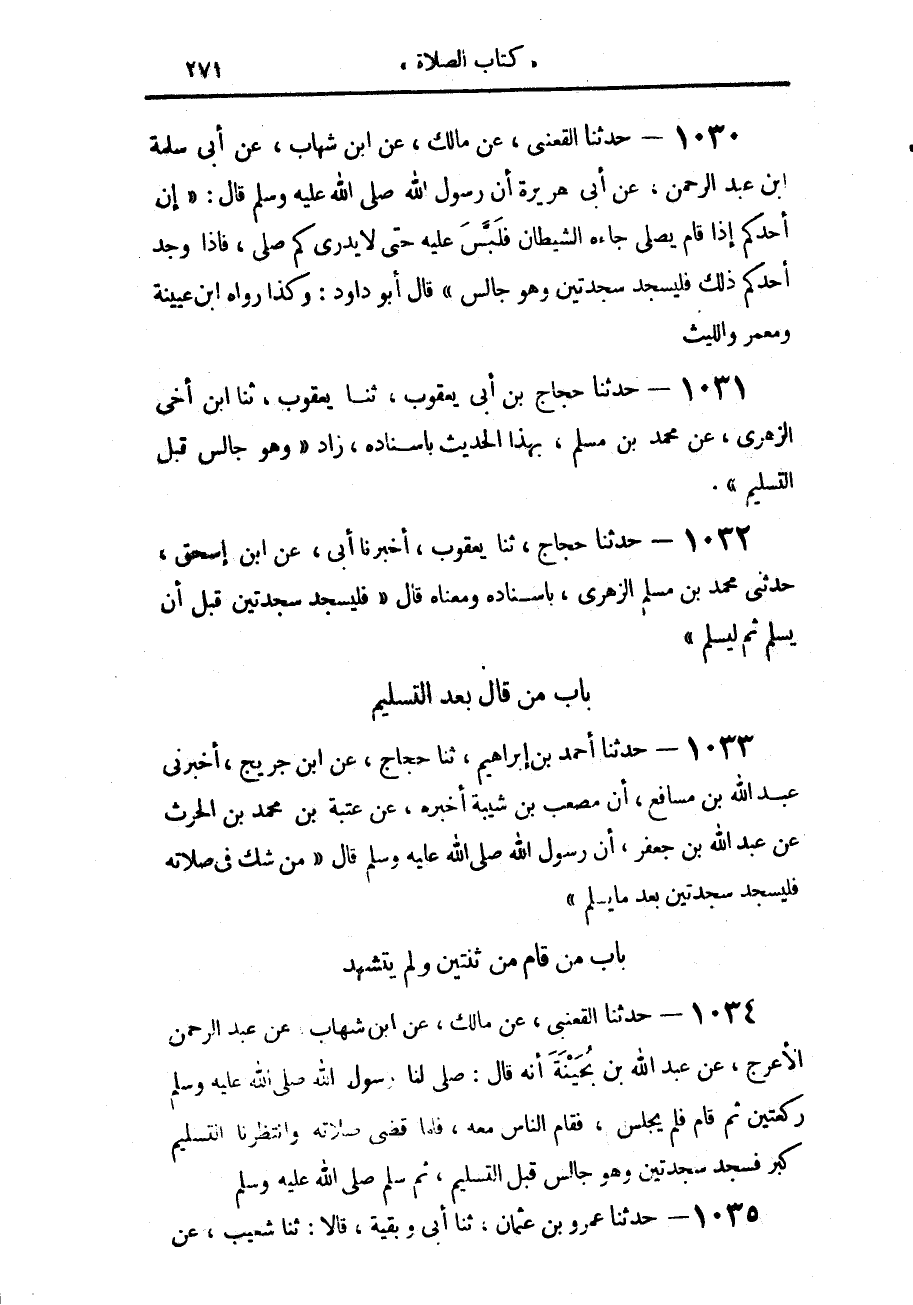 « كتاب الصلاة » ٢٧١
١٠٣٠ — حدثنا القعنبى ، عن مالك ، عن ابن شهاب ، عن أبى سلمة
ابن عبد الرحمن ، عن أبى هريرة أن رسول الله صلى الله عليه وسلم قال : « إن
أحدكم إذا قام يصلى جاءه الشيطان فلَبَّسَ عليه حتى لايدرى كم صلى ، فاذا وجد
أحدكم ذلك فليسجد سجدتين وهو جالس » قال أبو داود : وكذا رواه ابن عيينة
ومعمر والليث
١٠٣١ — حدثنا حجاج بن أبى يعقوب ، ثنا يعقوب ، ثنا ابن أخى
الزهرى ، عن محمد بن مسلم ، بهذا الحديث باسناده ، زاد « وهو جالس قبل
التسليم » .
١٠٣٢ — حدثنا حجاج ، ثنا يعقوب ، أخبرنا أبى ، عن ابن إسحق ،
حدثنى محمد بن مسلم الزهرى ، باسناده ومعناه قال « فليسجد سجدتين قبل أن
يسلم ثم ليسلم »
باب من قال بعد التسليم
١٠٣٣ — حدثنا أحمد بن إبراهيم ، ثنا حجاج ، عن ابن جريج ، أخبرنى
عبد الله بن مسافع ، أن مصعب بن شيبة أخبره ، عن عتبة بن محمد بن الحرث
عن عبد الله بن جعفر ، أن رسول الله صلى الله عليه وسلم قال « من شك فى صلاته
فليسجد سجدتين بعد مايسلم »
باب من قام من ثنتين ولم يتشهد
١٠٣٤ — حدثنا القعنبى ، عن مالك ، عن ابن شهاب عن عبد الرحمن
الأعرج ، عن عبد الله بن بُحَيْنَةَ أنه قال : صلى لنا رسول الله صلى الله عليه وسلم
ركعتين ثم قام فلم يجلس ، فقام الناس معه ، فلما قضى صلاته وانتظرنا التسليم
كبر فسجد سجدتين وهو جالس قبل التسليم ، ثم سلم صلى الله عليه وسلم
١٠٣٥ — حدثنا عمرو بن عثمان ، ثنا أبى وبقية ، قالا : ثنا شعيب ، عن